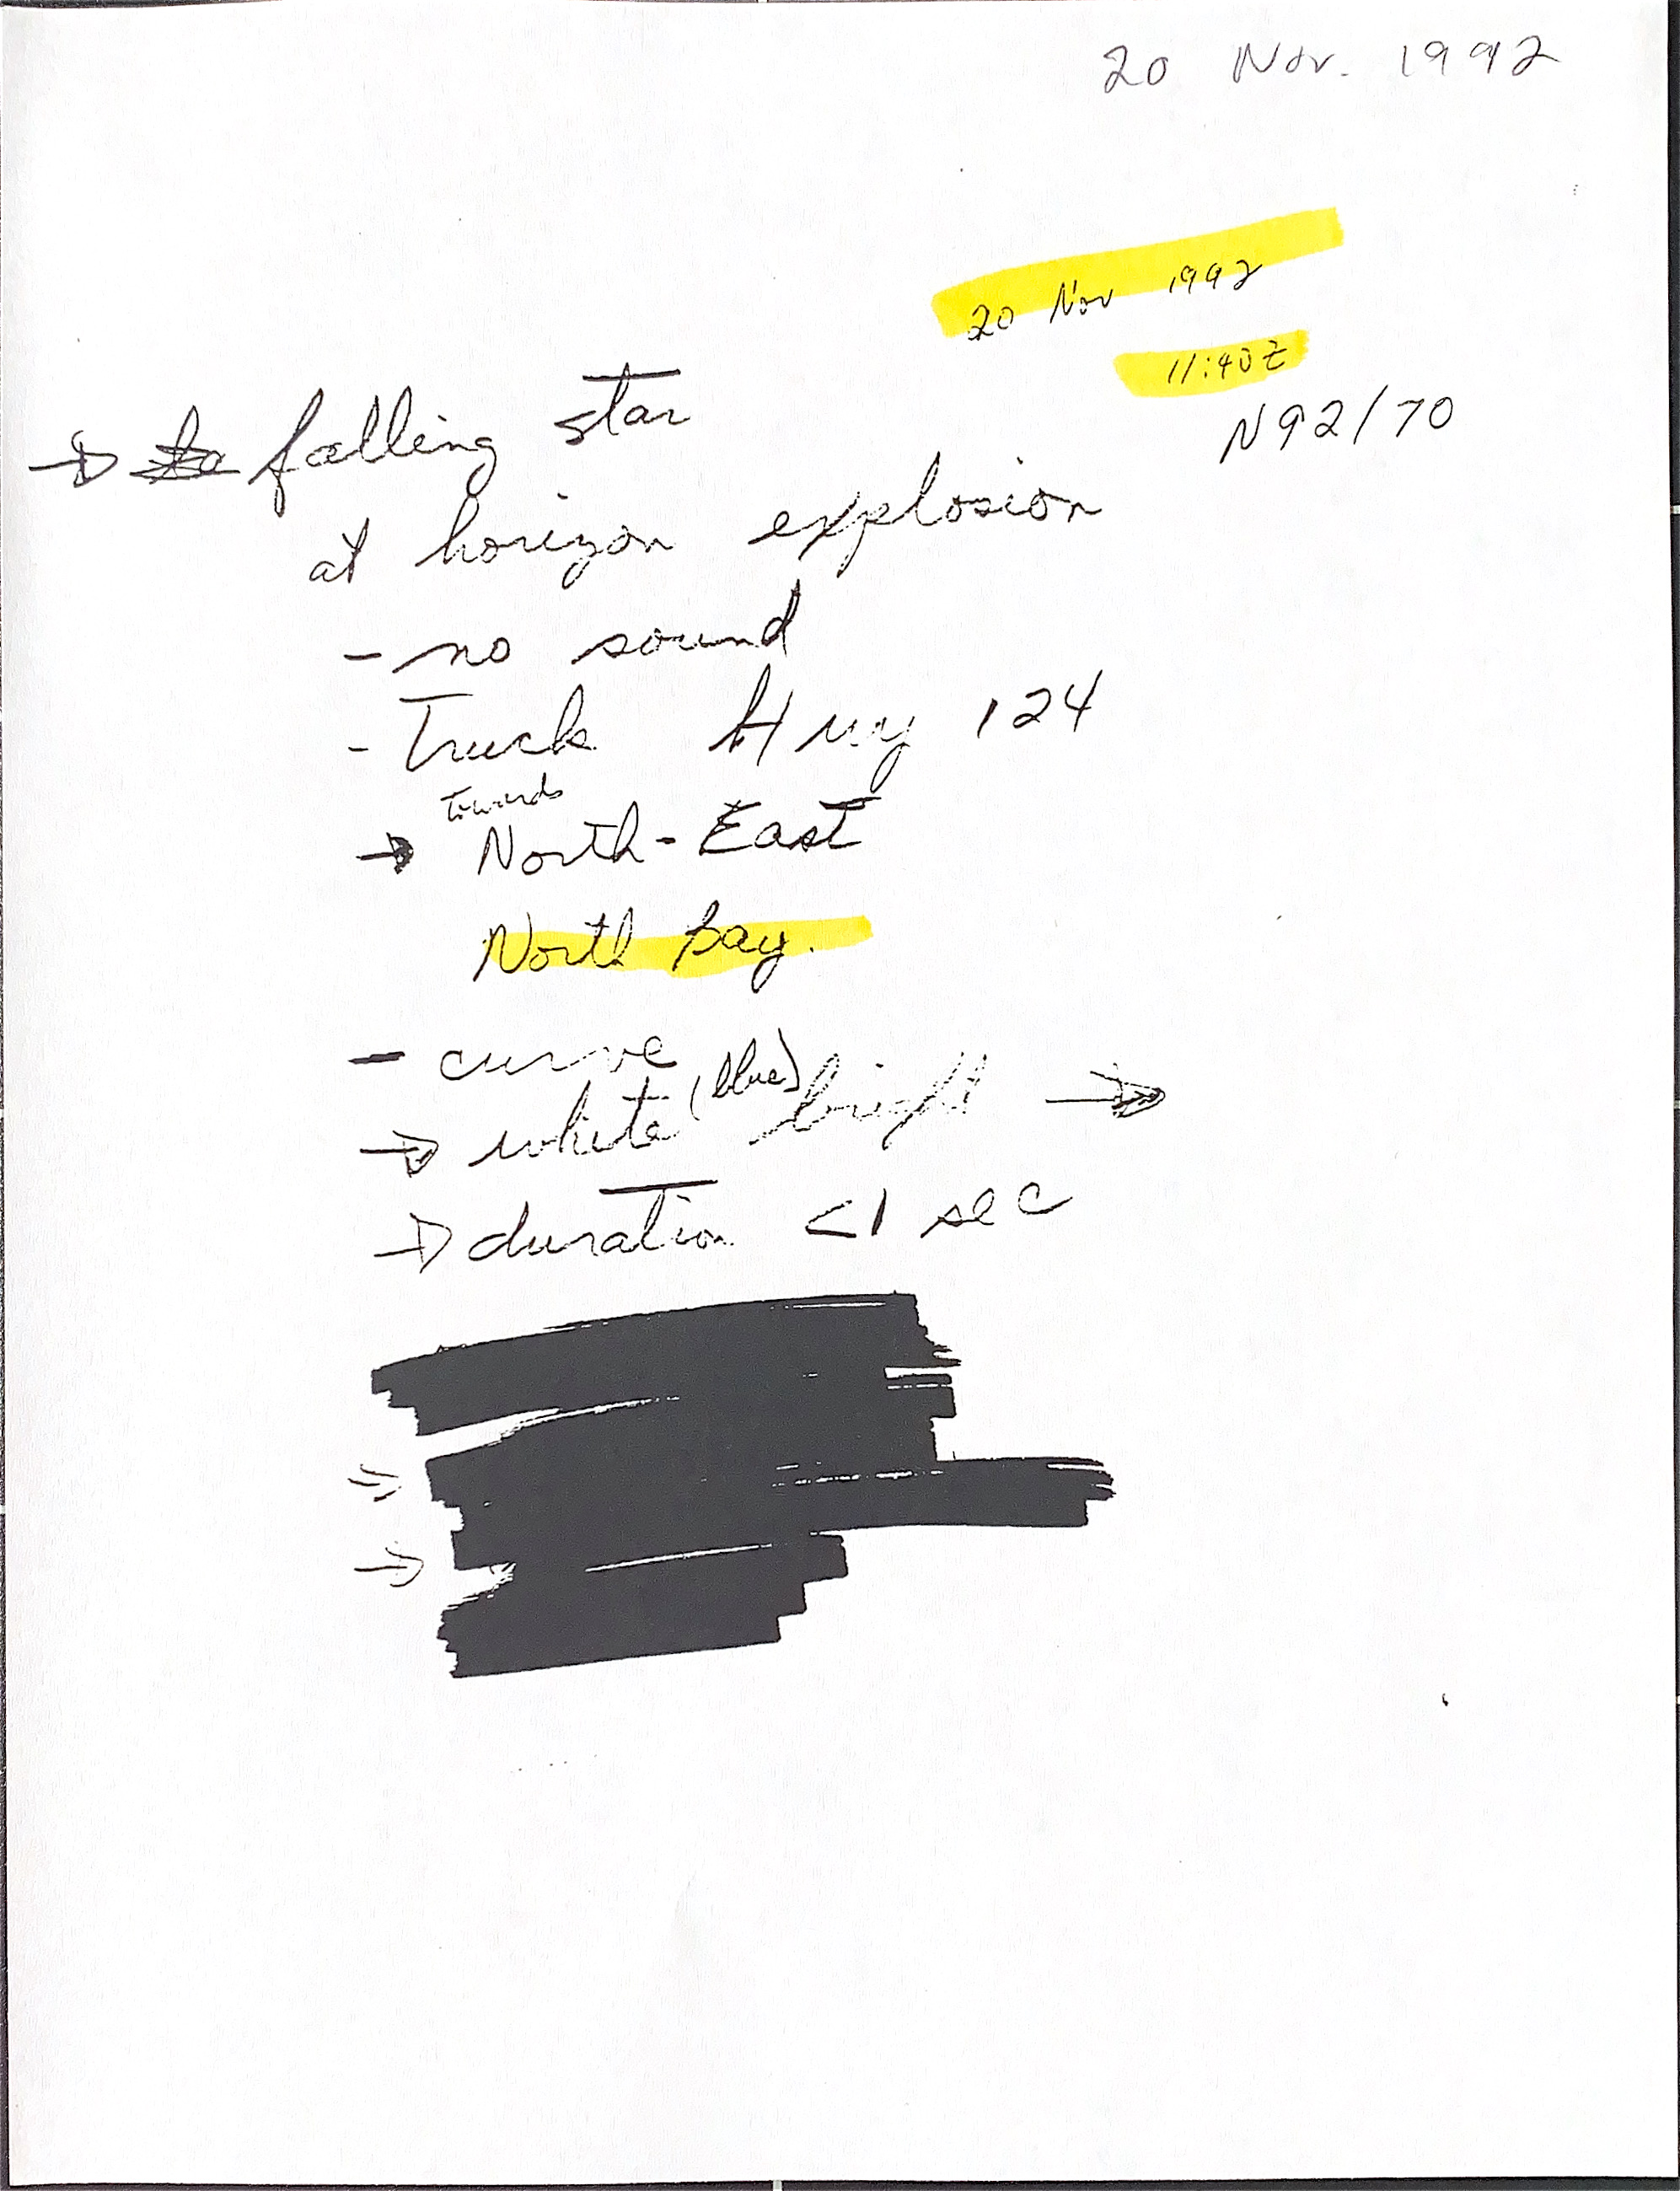 20 Nov. 1992
20 Nov 1992
11:40Z
N92/70
→ falling star
at horizon explosion
- no sound
- Truck Hwy 124
towards
→ North-East
North Bay.
- curve
→ white (blue) bright →
→ duration <1 sec
→
→